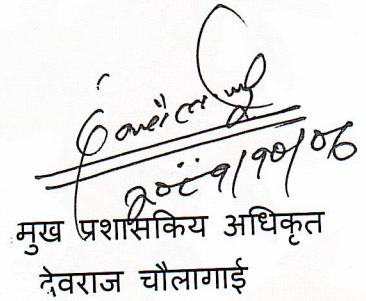 २०८१/१०/०६
मुख प्रशासकिय अधिकृत
देवराज चौलागाई